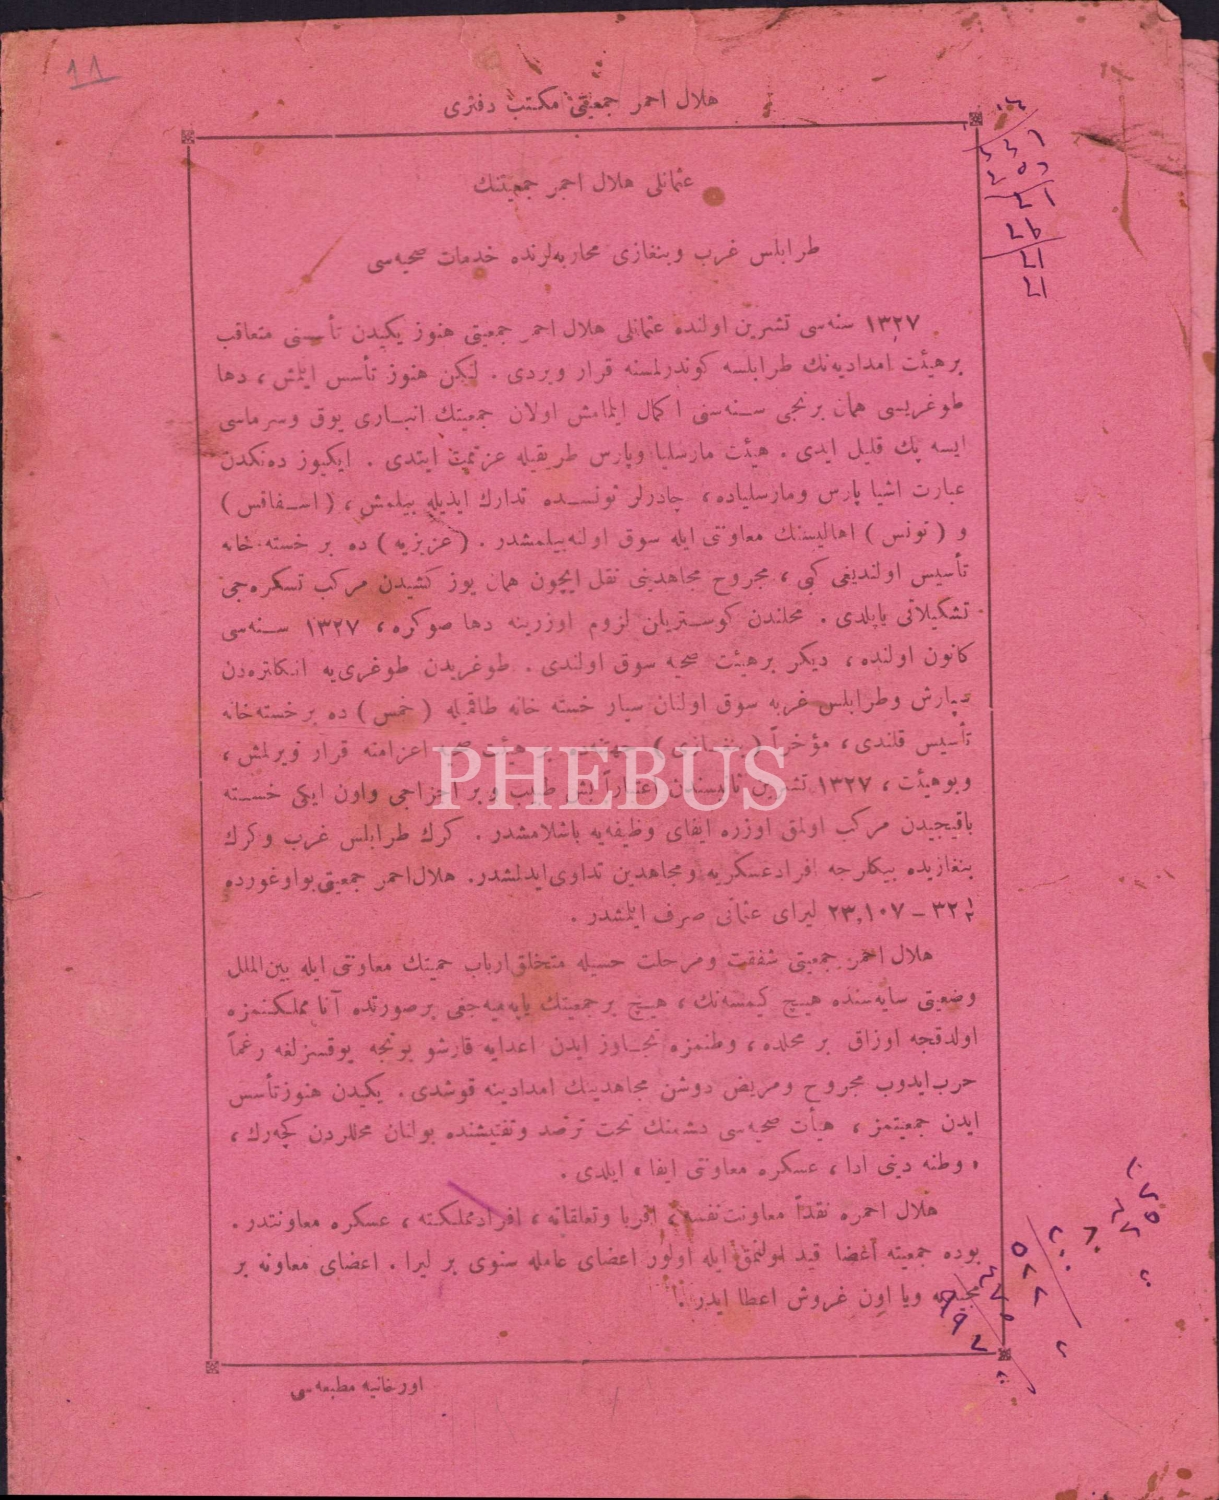 11
هلال احمر جمعیتی مكتب دفتری
عثمانلی هلال احمر جمعیتنك
طرابلس غرب و بنغازی محاربه‌لرنده خدمات صحیه‌سی
١٣٢٧ سنه‌سی تشرین اولنده عثمانلی هلال احمر جمعیتی هنوز یكیدن تأسسنی متعاقب
برهیئت امدادیه‌نك طرابلسه كوندرلمسنه قرار ویردی . لیكن هنوز تأسس ایلمش ، دها
طوغریسی همان برنجی سنه‌سنی اكمال ایلمامش اولان جمعیتك انباری یوق وسرمایسی
ایسه پك قلیل ایدی . هیئت مارسلیا وپارس طریقیله عزیمت ایتدی . ایكیوز ده‌نكدن
عبارت اشیا پارس ومارسلیاده ، چادرلر تونسده تدارك ایدیله بیلمش ، ( اسفاقس )
و ( تونس ) اهالیسنك معاونتی ایله سوق اولنه‌بیلمشدر . ( عزیزیه ) ده بر خسته خانه
تأسیس اولندیغی كبی ، مجروح مجاهدینی نقل ایچون همان یوز كشیدن مركب تسكره‌جی
تشكیلاتی یاپلدی . محلندن كوستریلن لزوم اوزرینه دها صوكره ، ١٣٢٧ سنه‌سی
كانون اولنده ، دیكر برهیئت صحیه سوق اولندی . طوغریدن طوغری‌یه انكلتره‌دن
وطرابلس غربه سوق اولنان سیار خسته خانه طاقمیله ( خمس ) ده برخسته‌خانه
تأسیس قلندی ، مؤخراً هیئت اعزامنه قرار ویرلمش ،
وبوهیئت ، ١٣٢٧ تشرین ثانیسندن اعتباراً بش طبیب وبر اجزاجی واون ایكی خسته
باقیجیدن مركب اولمق اوزره ایفای وظیفه‌یه باشلامشدر . كرك طرابلس غرب وكرك
بنغازیده بیكلرجه افرادعسكریه ومجاهدین تداوی ایدلمشدر . هلال احمر جمعیتی بواوغورده
٢٣,١٠٧ لیرای عثمانی صرف ایلمشدر .
هلال احمر جمعیتی شفقت ومرحمت حسیله متخلق ارباب حمیتك معاونتی ایله بین‌الملل
وضعیتی سایه‌سنده هیچ كیمسه‌نك ، هیچ برجمعیتك یاپه‌میه‌جغی برصورتده آنا مملكتمزه
اولدقجه اوزاق بر محلده ، وطنمزه تجاوز ایدن اعدایه قارشو بونجه یوقسزلغه رغماً
حرب‌ایدوب مجروح ومریض دوشن مجاهدینك امدادینه قوشدی . یكیدن هنوزتأسس
ایدن جمعیتمز ، هیأت صحیه‌سی دشمنك تحت ترصد وتفتیشنده بولنان محللردن كچه‌رك ،
وطنه دینی ادا ، عسكره معاونتی ایفا ایلدی .
هلال احمره نقداً معاونت نفسه ، اقربا وتعلقاته ، افرادمملكته ، عسكره معاونتدر .
بوده جمعیته اعضا قید اولنمق ایله اولور اعضای عامله سنوی بر لیرا . اعضای معاونه بر
مجیدیه ویا اون غروش اعطا ایدر .
اورخانیه مطبعه‌سی
PHEBUS